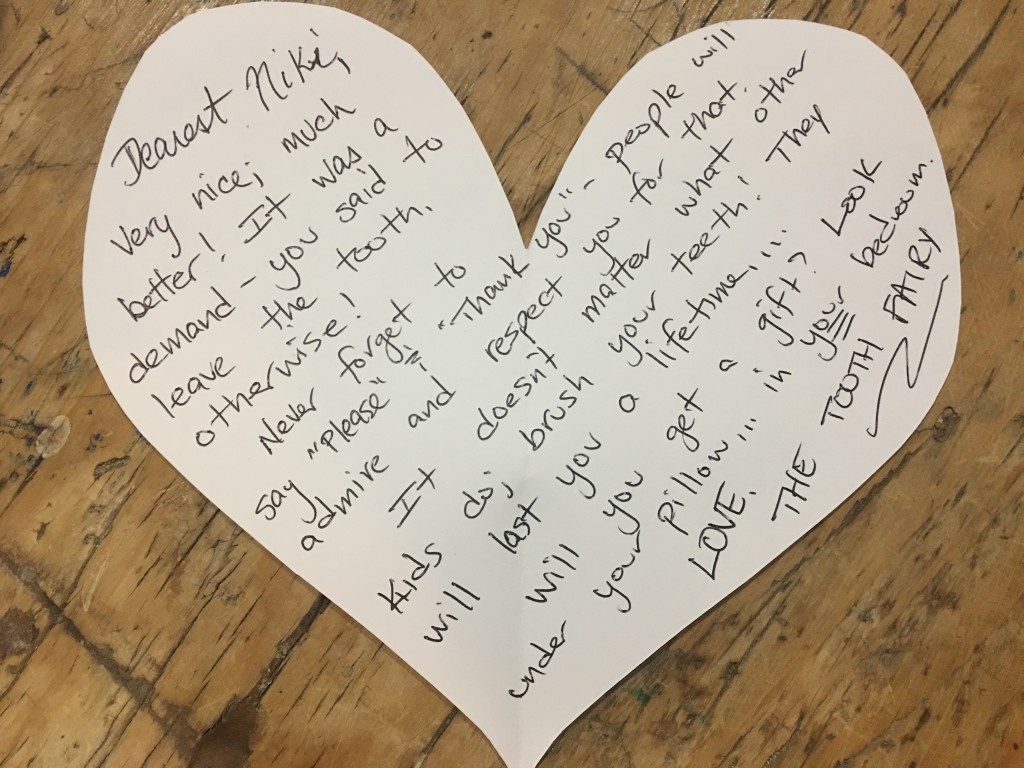 Dearest Niki,
Very nice; much
better! It was a
demand - you said to
leave the tooth.
otherwise!
Never forget to
say "please" & "Thank you" - people will
admire and respect you for that.
It doesn't matter what other
Kids do; brush your teeth! They
will last you a lifetime...
will you get a gift? Look
under your pillow... in your bedroom.
LOVE,
THE TOOTH FAIRY